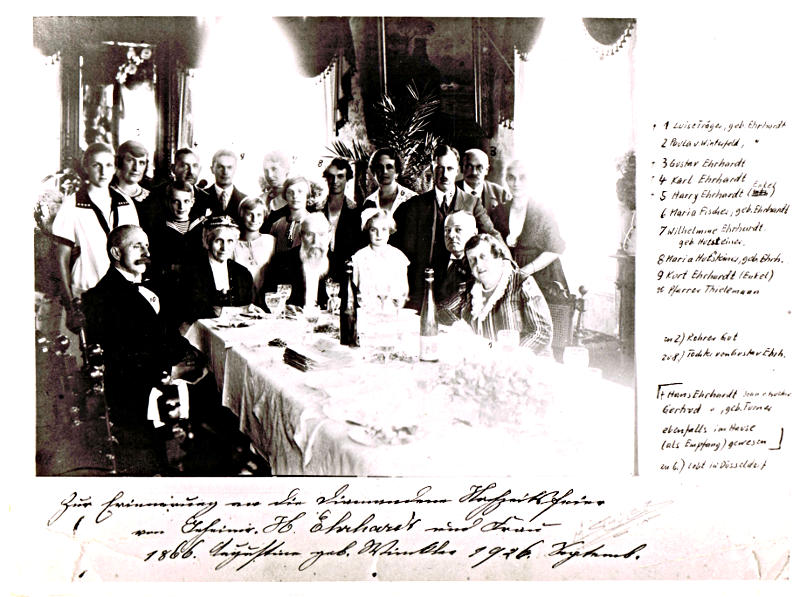 1 Luise Träger, geb. Ehrhardt
2 Paula v. Winterfeld, "
3 Gustav Ehrhardt
4 Karl Ehrhardt
5 Harry Ehrhardt (Enkel)
6 Maria Fischer, geb. Ehrhardt
7 Wilhelmine Ehrhardt
geb. Holsteiner.
8 Maria Holsteiner, geb. Ehrh.
9 Kurt Ehrhardt (Enkel)
Pfarrer Thielemann
zu 2) Rohrer Gut
zu 8.) Tochter von Gustav Ehrh.
Hans Ehrhardt
Gertrud " , geb. Turner
ebenfalls im Hause
(als Empfang) gewesen
zu 6.) lebt in Düsseldorf
Zur Erinnerung an die diamandene Hochzeitsfeier
von Geheimr. H. Ehrhardt und Frau
1866. Augustine geb. Winkler 1926. Septemb.
8
9
3